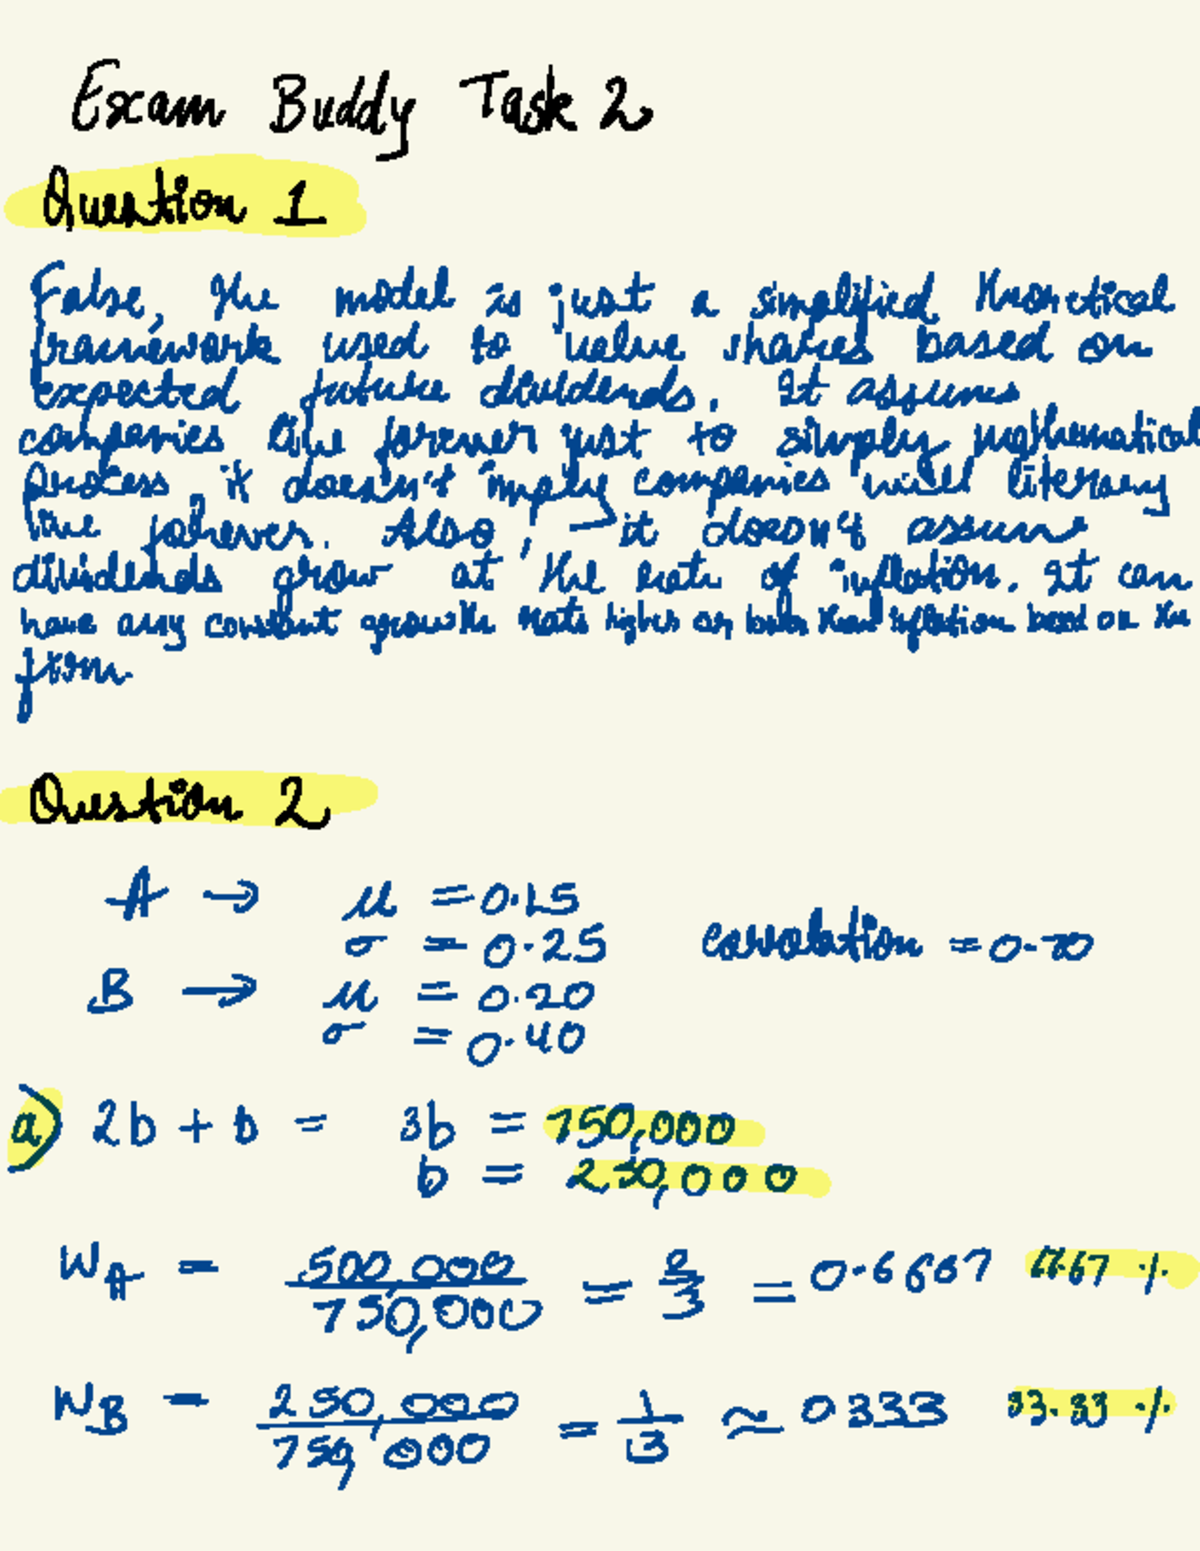 Exam Buddy Task 2
Question 1
False, the model is just a simplified theoretical
framework used to value shares based on
expected future dividends. It assumes
companies live forever just to simply mathematical
process, it doesn't imply companies will literary
live forever. Also, it doesn't assume
dividends grow at the rate of inflation. It can
have any constant growth rate higher or than inflation based on the
firm.
Question 2
A → μ = 0.15
σ = 0.25
correlation = 0.70
B → μ = 0.20
σ = 0.40
a) 2b + b = 3b = 750,000
b = 250,000
WA = 500,000 / 750,000 = 2/3 = 0.6667 66.67 %
WB = 250,000 / 750,000 = 1/3 ≈ 0.333 33.33 %